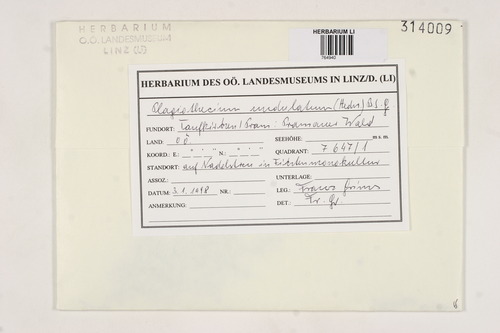 HERBARIUM
O.Ö. LANDESMUSEUM
LINZ (LI)
HERBARIUM LI
764940
314009
HERBARIUM DES OÖ. LANDESMUSEUMS IN LINZ/D. (LI)
Plagiothecium undulatum (Hedw.) B.S.G.
FUNDORT: Taufkirchen/Pram: Pramauer Wald
LAND: OÖ SEEHÖHE: m s. m.
KOORD.: E.: ° ' ", N.: ° ' " QUADRANT: 7647/1
STANDORT: auf Nadelstreu in Fichtenmonokultur
ASSOZ.: UNTERLAGE:
DATUM: 3.1.1998 NR.: LEG.: Franz Grims
ANMERKUNG: DET.: Fr. Gr.